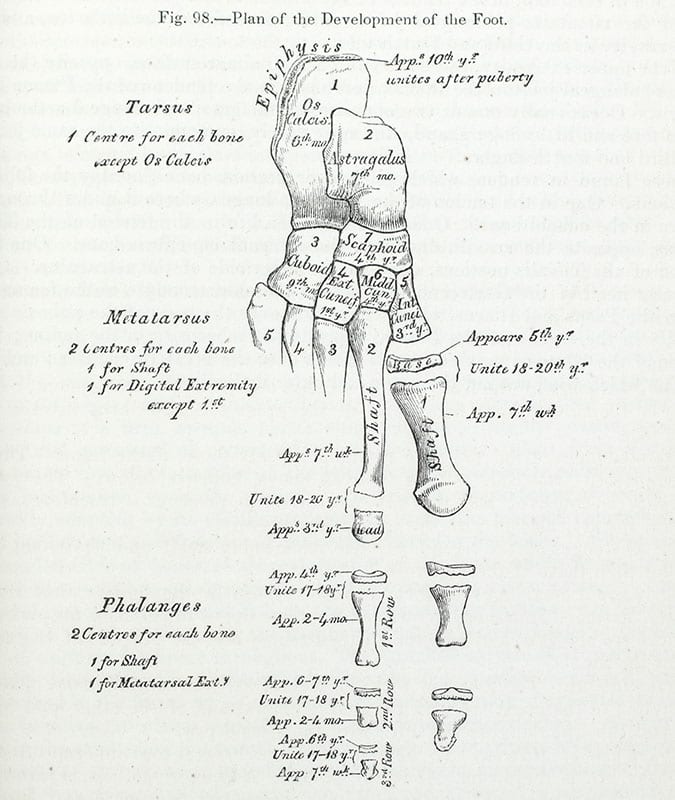 Fig. 98.—Plan of the Development of the Foot.
Epiphysis
App.s 10th y.r
unites after puberty
1
Os
Calcis.
6th mo.
2
Astragalus
7th mo.
Tarsus
1 Centre for each bone
except Os Calcis
3
Cuboid
9th m
7
Scaphoid
4th y.r
4
Ext.
Cuneif
1st y.r
6
Midd
Cun.
4th y.r
5
Int
Cunei
3rd y.r
5
4
3
2
Shaft
Metatarsus
2 Centres for each bone
1 for Shaft
1 for Digital Extremity
except 1.st
Appears 5th y.r
Base
Unite 18-20th y.r
1
Shaft
App. 7th wk
App.s 7th wk.
Unite 18-20 y.r
App.s 3rd y.r
Head
App. 4th y.r
Unite 17-18 y.r
App. 2-4 mo.
1st Row
Phalanges
2 Centres for each bone
1 for Shaft
1 for Metatarsal Ext.y
App. 6-7th y.r
Unite 17-18 y.r
App. 2-4 mo.
2nd Row
App. 6th y.r
Unite 17-18 y.r
App. 7th wk.
3rd Row